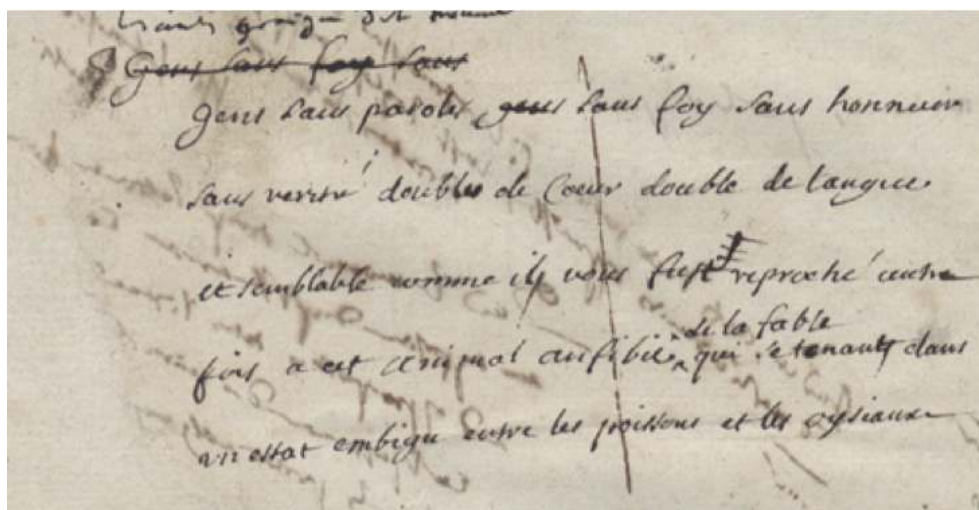 Gens sans foy sans
gens sans paroles gens sans foy sans honneur
sans verité doubles de Coeur double de langue
et semblable comme ilz vous fust reproché autre
fois a cet animal anfibie de la fable qui se tenant dans
un estat embigu entre les poissons et les oysiaux